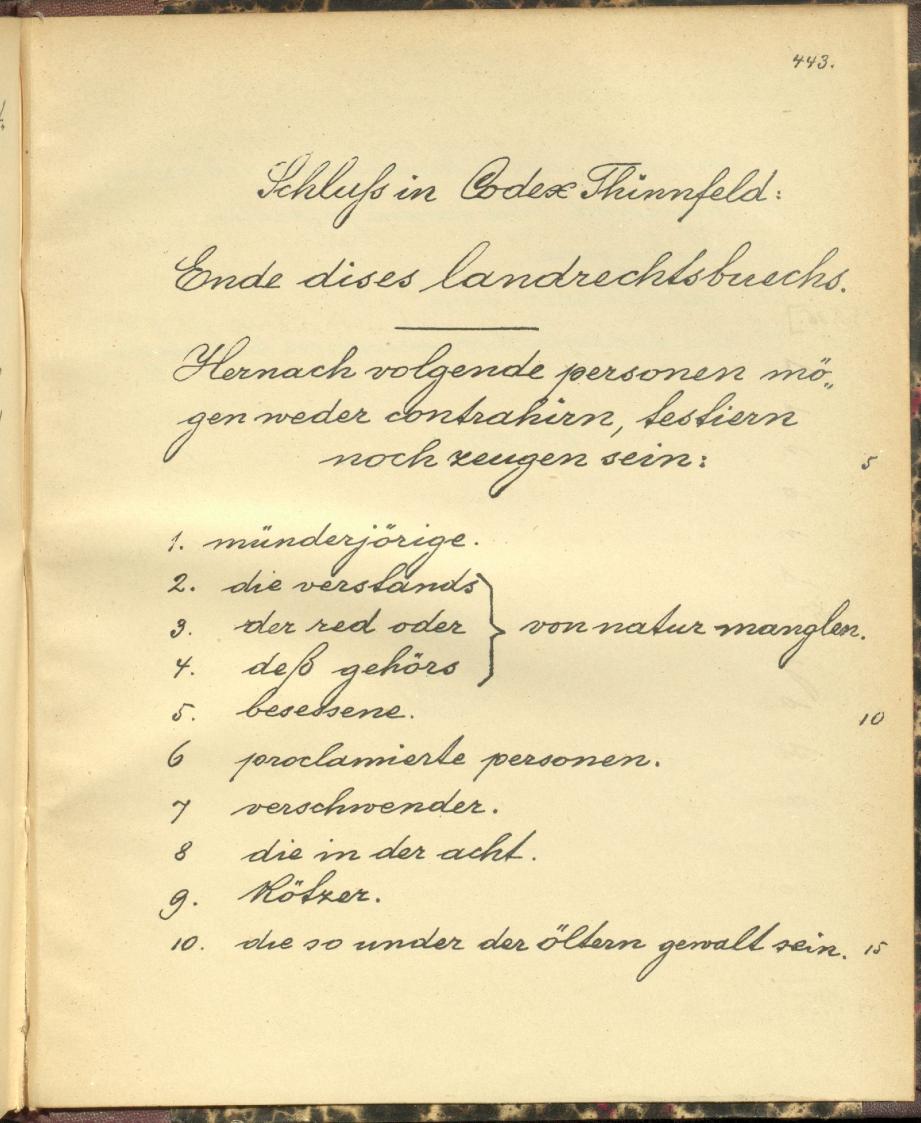 443.
Schluß in Codex Thinnfeld:
Ende dises landrechtsbuechs.
Hernach volgende personen mö„
gen weder contrahirn, testiern
noch zeugen sein: 5
1. münderjörige.
2. die verstands
3. der red oder } von natur manglen.
4. deß gehörs
5. besessene. 10
6 proclamierte personen.
7 verschwender.
8 die in der acht.
9. Kötzer.
10. die so under der öltern gewalt sein. 15